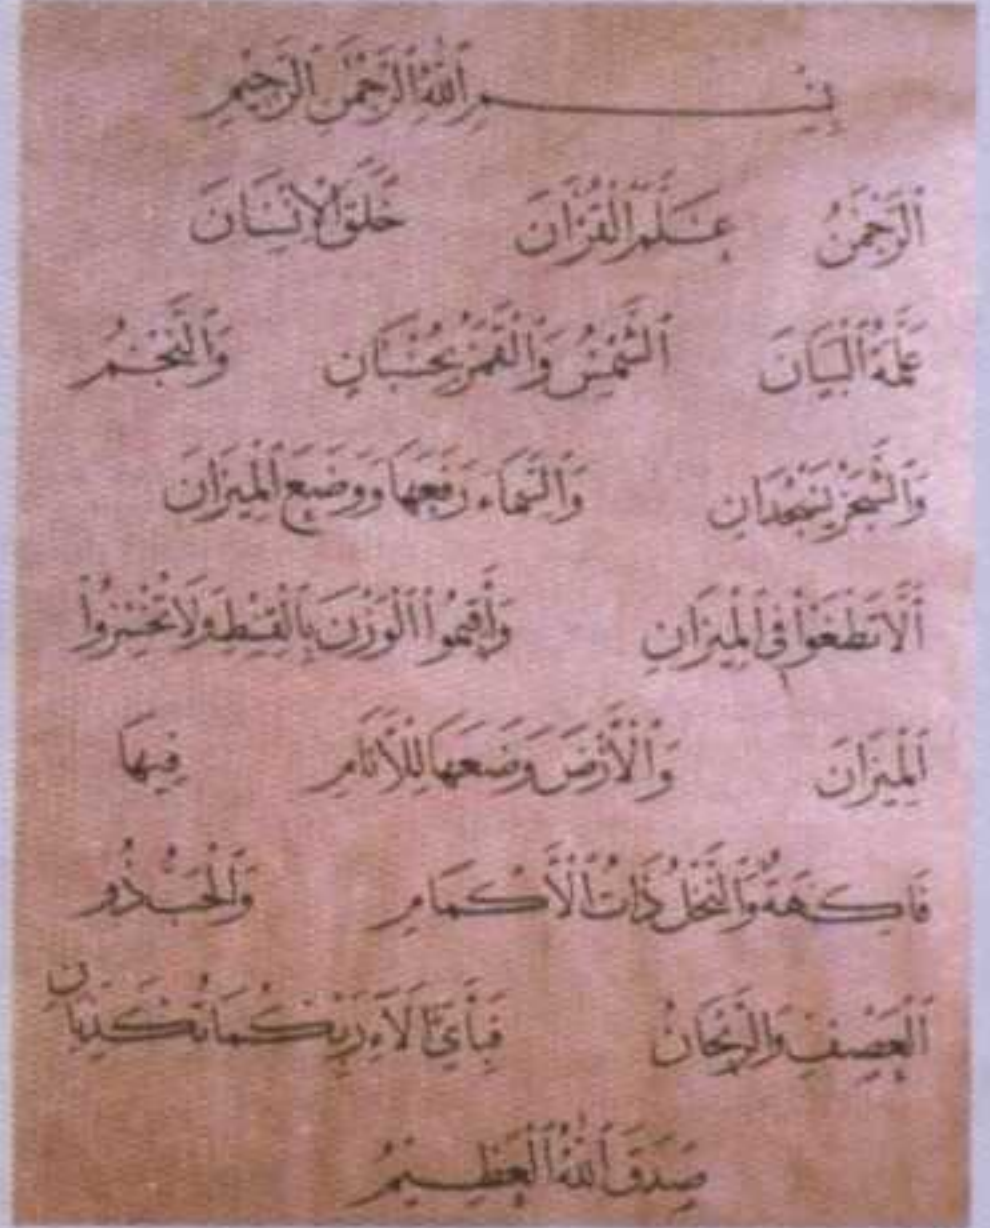 بِسْمِ اللَّهِ الرَّحْمَٰنِ الرَّحِيمِ
ٱلرَّحْمَٰنُ عَلَّمَ ٱلْقُرْآنَ خَلَقَ ٱلْإِنْسَانَ
عَلَّمَهُ ٱلْبَيَانَ ٱلشَّمْسُ وَٱلْقَمَرُ بِحُسْبَانٍ وَٱلنَّجْمُ
وَٱلشَّجَرُ يَسْجُدَانِ وَٱلسَّمَاءَ رَفَعَهَا وَوَضَعَ ٱلْمِيزَانَ
أَلَّا تَطْغَوْا فِي ٱلْمِيزَانِ وَأَقِيمُوا ٱلْوَزْنَ بِٱلْقِسْطِ وَلَا تُخْسِرُوا
ٱلْمِيزَانَ وَٱلْأَرْضَ وَضَعَهَا لِلْأَنَامِ فِيهَا
فَاكِهَةٌ وَٱلنَّخْلُ ذَاتُ ٱلْأَكْمَامِ وَٱلْحَبُّ ذُو
ٱلْعَصْفِ وَٱلرَّيْحَانُ فَبِأَيِّ آلَاءِ رَبِّكُمَا تُكَذِّبَانِ
صَدَقَ ٱللَّهُ ٱلْعَظِيمُ